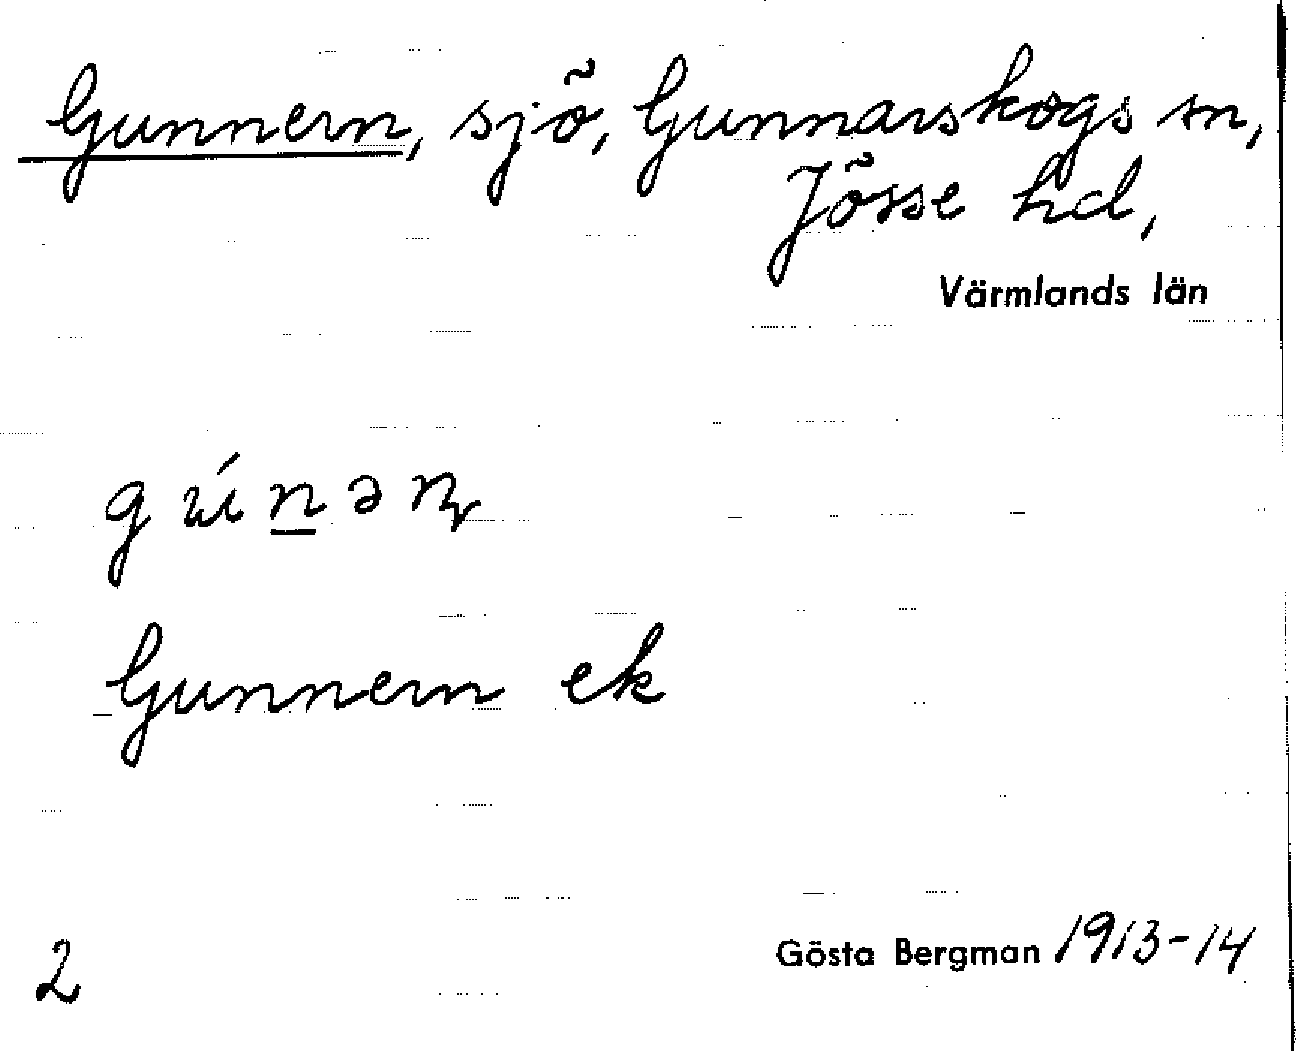 Gunnern, sjö, Gunnarskogs sn,
Jösse hd,
Värmlands län
gún̲əɳ
Gunnern ek
2
Gösta Bergman 1913-14